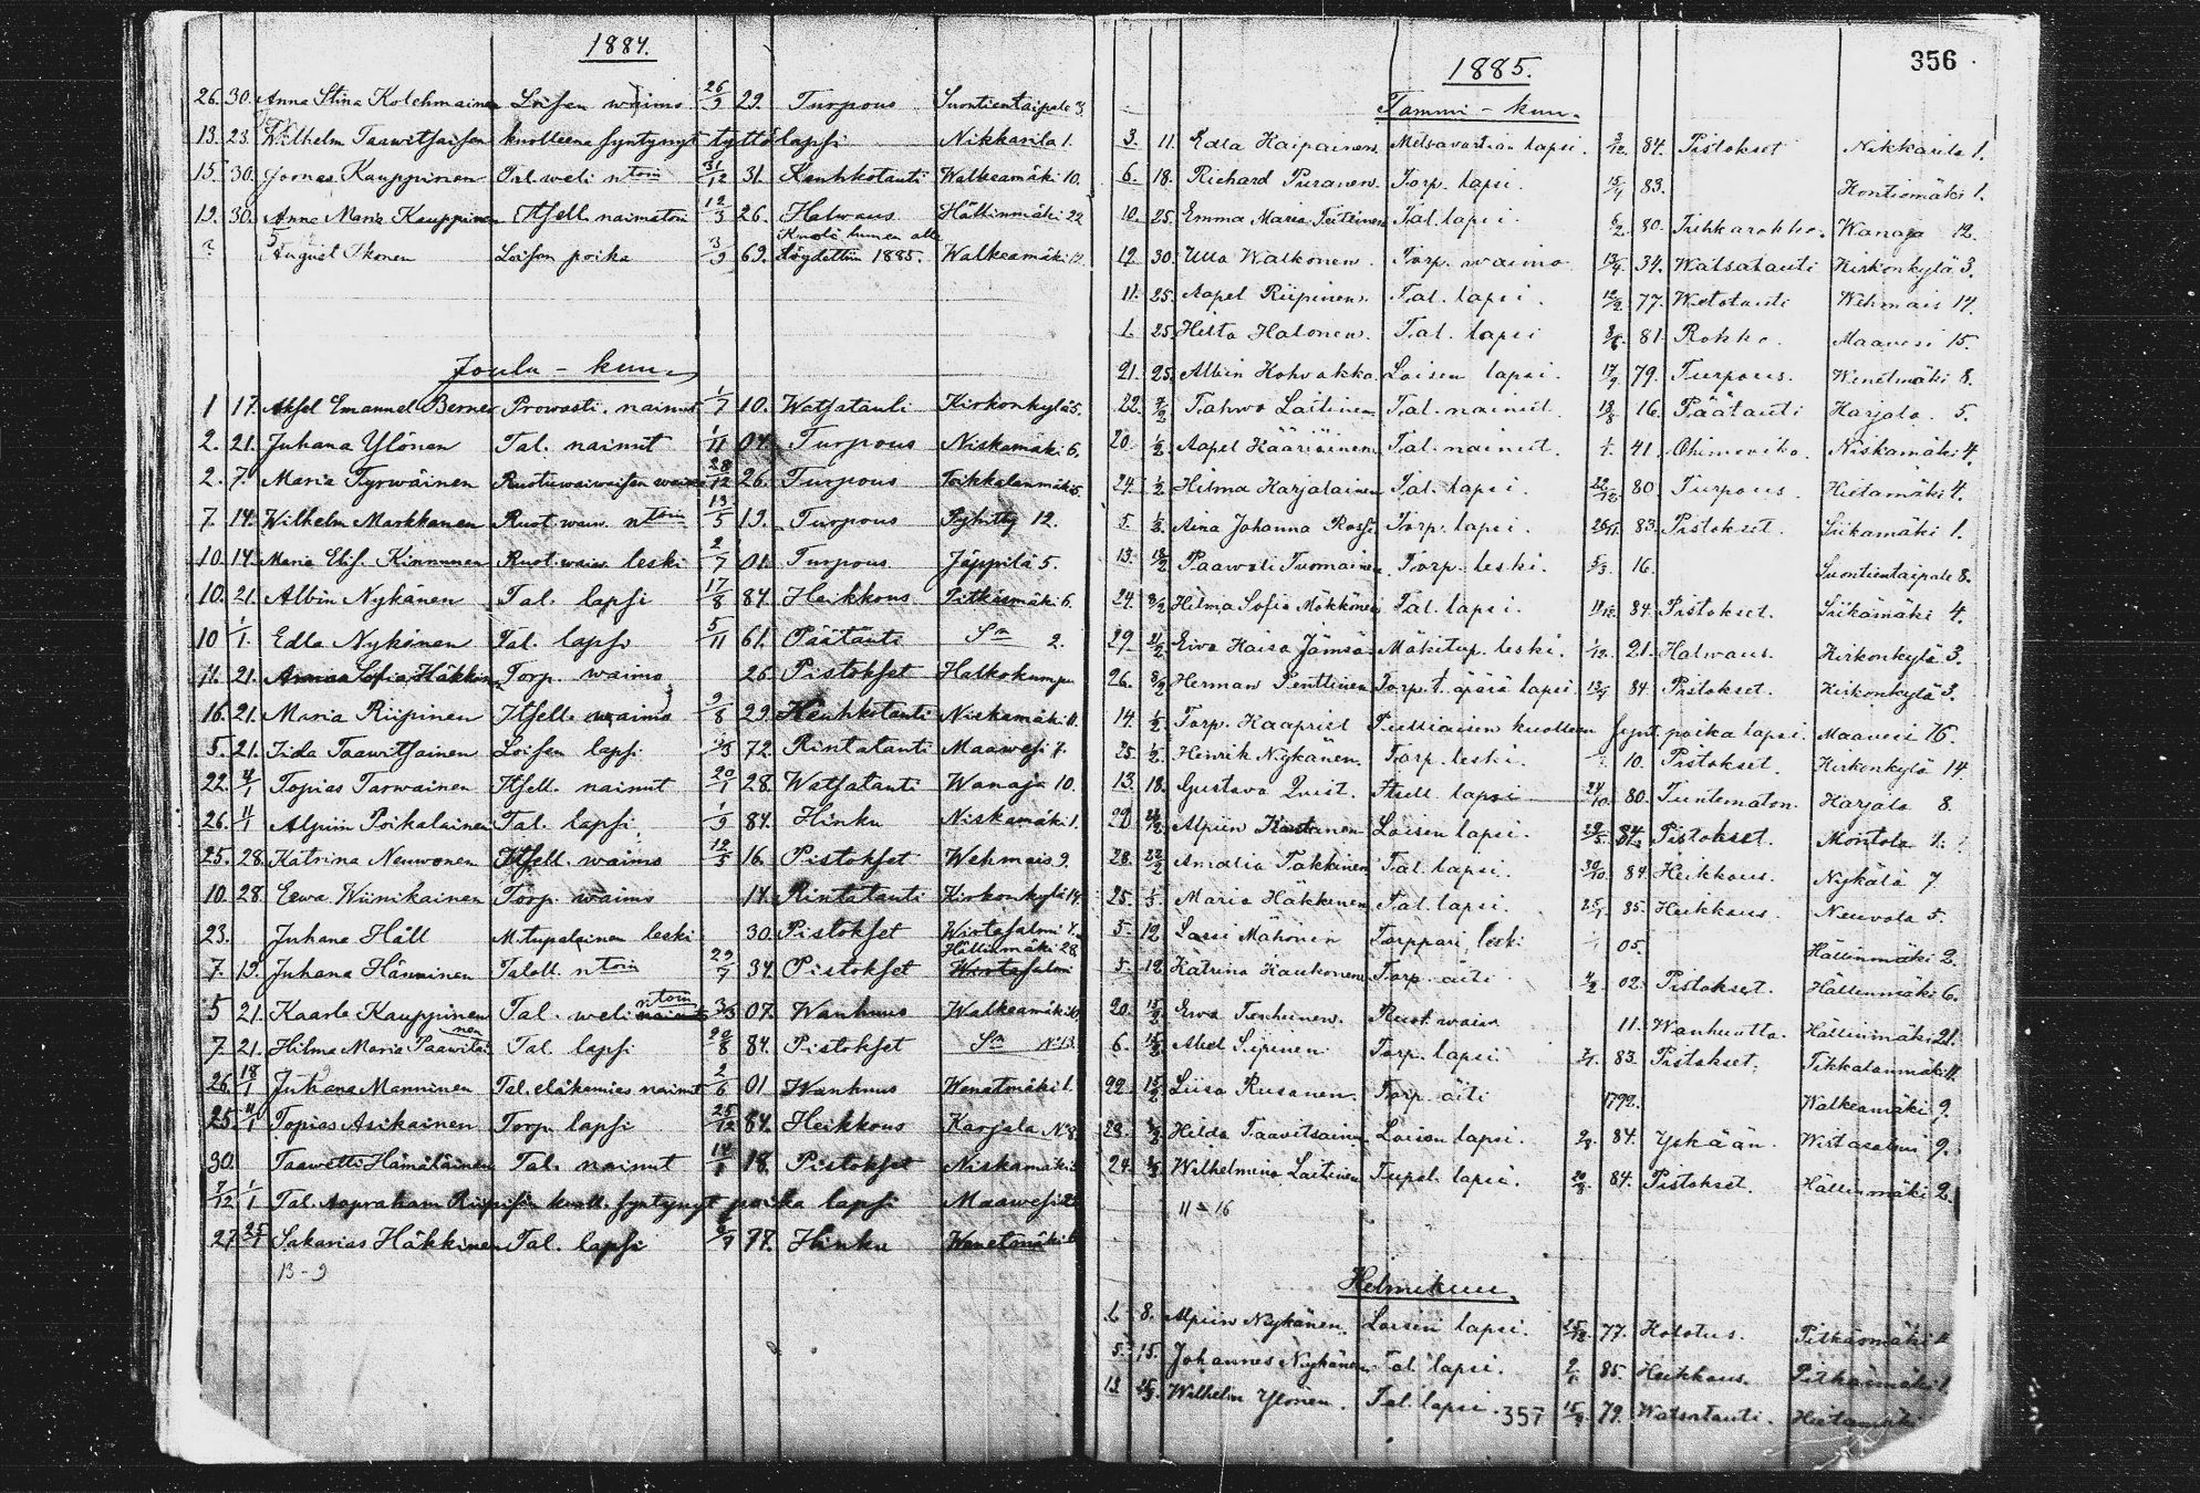 1884.
26. 30. Anna Stina Kolehmainen Loisen waimo 26/9 29. Turpous Suontientaipale 3.
13. 23. Wilhelm Taawitsaisen kuolleena syntynyt tyttölapsi Nikkarila 1.
15. 30. Joonas Kauppinen Tal. weli ntoin 31/12 31. Keuhkotauti Walkeamäki 10.
19. 30. Anna Maria Kauppinen Itsell. naimatoin 12/3 26. Halwaus Hällinmäki 22
Kuoli lumen alle
? August Ikonen Loisen poika 3/9 69. Löydettiin 1885. Walkeamäki 12.
Joulu - kuu
1 17. Aksel Emanuel Berner Prowasti. nainut 1/7 10. Watsatauti Kirkonkylä 5.
2. 21. Juhana Ylönen Tal. nainut 1/11 04. Turpous Niskamäki 6.
2. 7. Maria Tyrwäinen Ruotuwaiwaisen waimo 28/12 26. Turpous Toikkalanmäki 5.
7. 14. Wilhelm Markkanen Ruot. waiw. ntoin 13/5 19. Turpous Pyhitty 12.
10. 14. Maria Elis. Kinnunen Ruot. waiw. leski 2/7 01. Turpous Jäppilä 5.
10. 21. Albin Nykänen Tal. lapsi 17/8 84. Heikkous Pitkäsmäki 6.
10 1/1. Edla Nykänen Tal. lapsi 5/11 61. Päätauti Sm 2.
11. 21. Anna Sofia Häkkinen Torp. waimo 26. Pistokset Halkokumpu
16. 21. Maria Riipinen Itsell. waimo 9/8 29. Keuhkotauti Niskamäki 11.
5. 21. Iida Taawitsainen Loisen lapsi 72. Rintatauti Maawesi 7.
22. 4/1 Topias Tarwainen Itsell. nainut 20/1 28. Watsatauti Wanaja 10.
26. 4/1 Alpiin Poikalainen Tal. lapsi 1/9 84. Hinku Niskamäki 1.
25. 28. Katrina Neuwonen Itsell. waimo 12/5 16. Pistokset Wehmais 9.
10. 28. Eewa Wiinikainen Torp. waimo 14. Rintatauti Kirkonkylä 14.
23. Juhana Häll M.tupalainen leski 30. Pistokset Wirtasalmi 4.
7. 19. Juhana Hänninen Taloll. ntoin 29/7 34. Pistokset Hällinmäki 28. Wirtasalmi
5 21. Kaarle Kauppinen Tal. weli ntoin nainut 3/3 07. Wanhuus Walkeamäki 10.
7. 21. Hilma Maria Paawilainen Tal. lapsi 20/8 84. Pistokset Sm No 13.
26. 18/1 Juhana Manninen Tal. eläkemies nainut 2/6 01 Wanhuus Wenetmäki 1.
25. 4/1 Topias Asikainen Torp. lapsi 25/12 84. Heikkous Karjala No 8.
30. Taawetti Hämäläinen Tal. nainut 18. Pistokset Niskamäki
7/12 1/1 Tal. Aapraham Riipisen kuoll. syntynyt poika lapsi Maawesi
27 25/1 Sakarias Häkkinen Tal. lapsi 77. Hinku Wenetmäki
13 - 9
356
1885.
Tammi - kuu.
3. 11. Edla Haipainen. Metsavartian lapsi. 3/12. 84. Pistokset Nikkarila 1.
6. 18. Richard Puranen. Torp. lapsi. 15/4 83. Kontiomäki 1.
10. 25. Emma Maria Teitinen Tal. lapsi. 6/2 80. Tuhkarokko. Wanaja 12.
19. 30. Ulla Walkonen. Torp. waimo 13/4. 34. Watsatauti Kirkonkylä 3.
11. 25. Aapel Riipinen. Tal. lapsi. 12/2 77. Wetotauti Wehmais 14.
1. 25. Hilta Halonen. Tal. lapsi 81. Rokko. Maavesi 15.
21. 25. Albin Hohvakka Loisen lapsi. 17/9. 79. Turpous. Wenetmäki 8.
22. Tahwo Laitinen Tal. nainut. 18/8 16. Päätauti Harjala. 5.
20. 1/2 Aapel Kääriäinen Tal. nainut. 41. Niskamäki 4.
24. 1/2 Hilma Karjalainen Tal. lapsi. 22/12 80 Turpous. Hietamäki 4.
5. 1/2 Aina Johanna Rossi Torp. lapsi. 26/11. 83. Pistokset. Siikamäki 1.
13. 18/2 Paawali Tuomainen. Torp. leski. 5/3. 16. Suontientaipale 8.
24. 8/2 Hilma Sofia Mökkönen Tal. lapsi. 84. Pistokset. Siikamäki 4.
29. Eiva Kaisa Jämsä Mäkitup. leski. 1/12. 21. Halwaus. Kirkonkylä 3.
26. 8/2 Herman Penttinen Torp. t. äpärä lapsi 84. Pistokset. Kirkonkylä 3.
14. 1/2 Torp. Kaapriel Pulliaisen kuolleen synt. poika lapsi. Maavesi 16.
25. 1/2 Henrik Nykänen. Torp. leski. 10. Pistokset. Kirkonkylä 14.
13. 18. Gustava Qvist. Itsell. lapsi 24/10. 80. Tuntematon. Harjala 8.
29 22/2 Alpiin Kautanen Loisen lapsi. 84. Pistokset. Montola 1.
28. 22/2 Amalia Takkinen Tal. lapsi. 30/10. 84. Heikkous. Nykälä 7.
25. Maria Häkkinen Tal. lapsi. 25/1. 85. Heikkous. Neuvola 5.
5. 12 Lassi Mähönen Torppari, leski 05. Hällinmäki 2.
5. 12 Katrina Kaukonen Torp. äiti 4/2. 02. Pistokset. Hällinmäki 6.
20. 15/2 Ewa Ruot. waiw 11. Wanhuutta. Hällinmäki 21.
6. 15/2 Abel Sipinen. Torp. lapsi 83. Pistokset. Tikkalanmäki 11.
22. 15/2 Liisa Rusanen. Torp. äiti 1792. Walkeamäki 9.
23. Hilda Taavitsainen Loisen lapsi. 84. Yskään. Wirtasalmi 9.
24. Wilhelmina Laitinen Tupal. lapsi. 84. Pistokset. Hällinmäki 2.
11 - 16
Helmikuu.
1. 8. Alpiin Nykänen. Loisen lapsi. 77. Kolotus. Pitkäsmäki
5. 15. Johannes Nykänen Tal. lapsi. 2/1. 85. Heikkous. Pitkäsmäki 1.
13. Wilhelm Ylönen. Tal. lapsi. 79. Watsatauti. Hietamäki
357